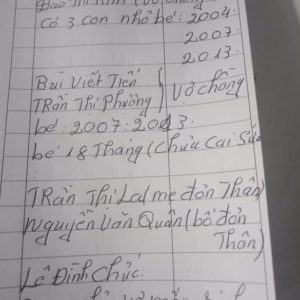 Có 3 con nhỏ bé: 2004
2007
2013
Bùi Viết Tiến
Trần Thị Phường } Vợ chồng
bé: 2007: 2013:
bé 18 Tháng (chửa Cai Sữa
TRẦN Thị Lal mẹ đơn Thân
Nguyễn Văn Quân (bố đơn
Thân)
Lê Đình Chức: